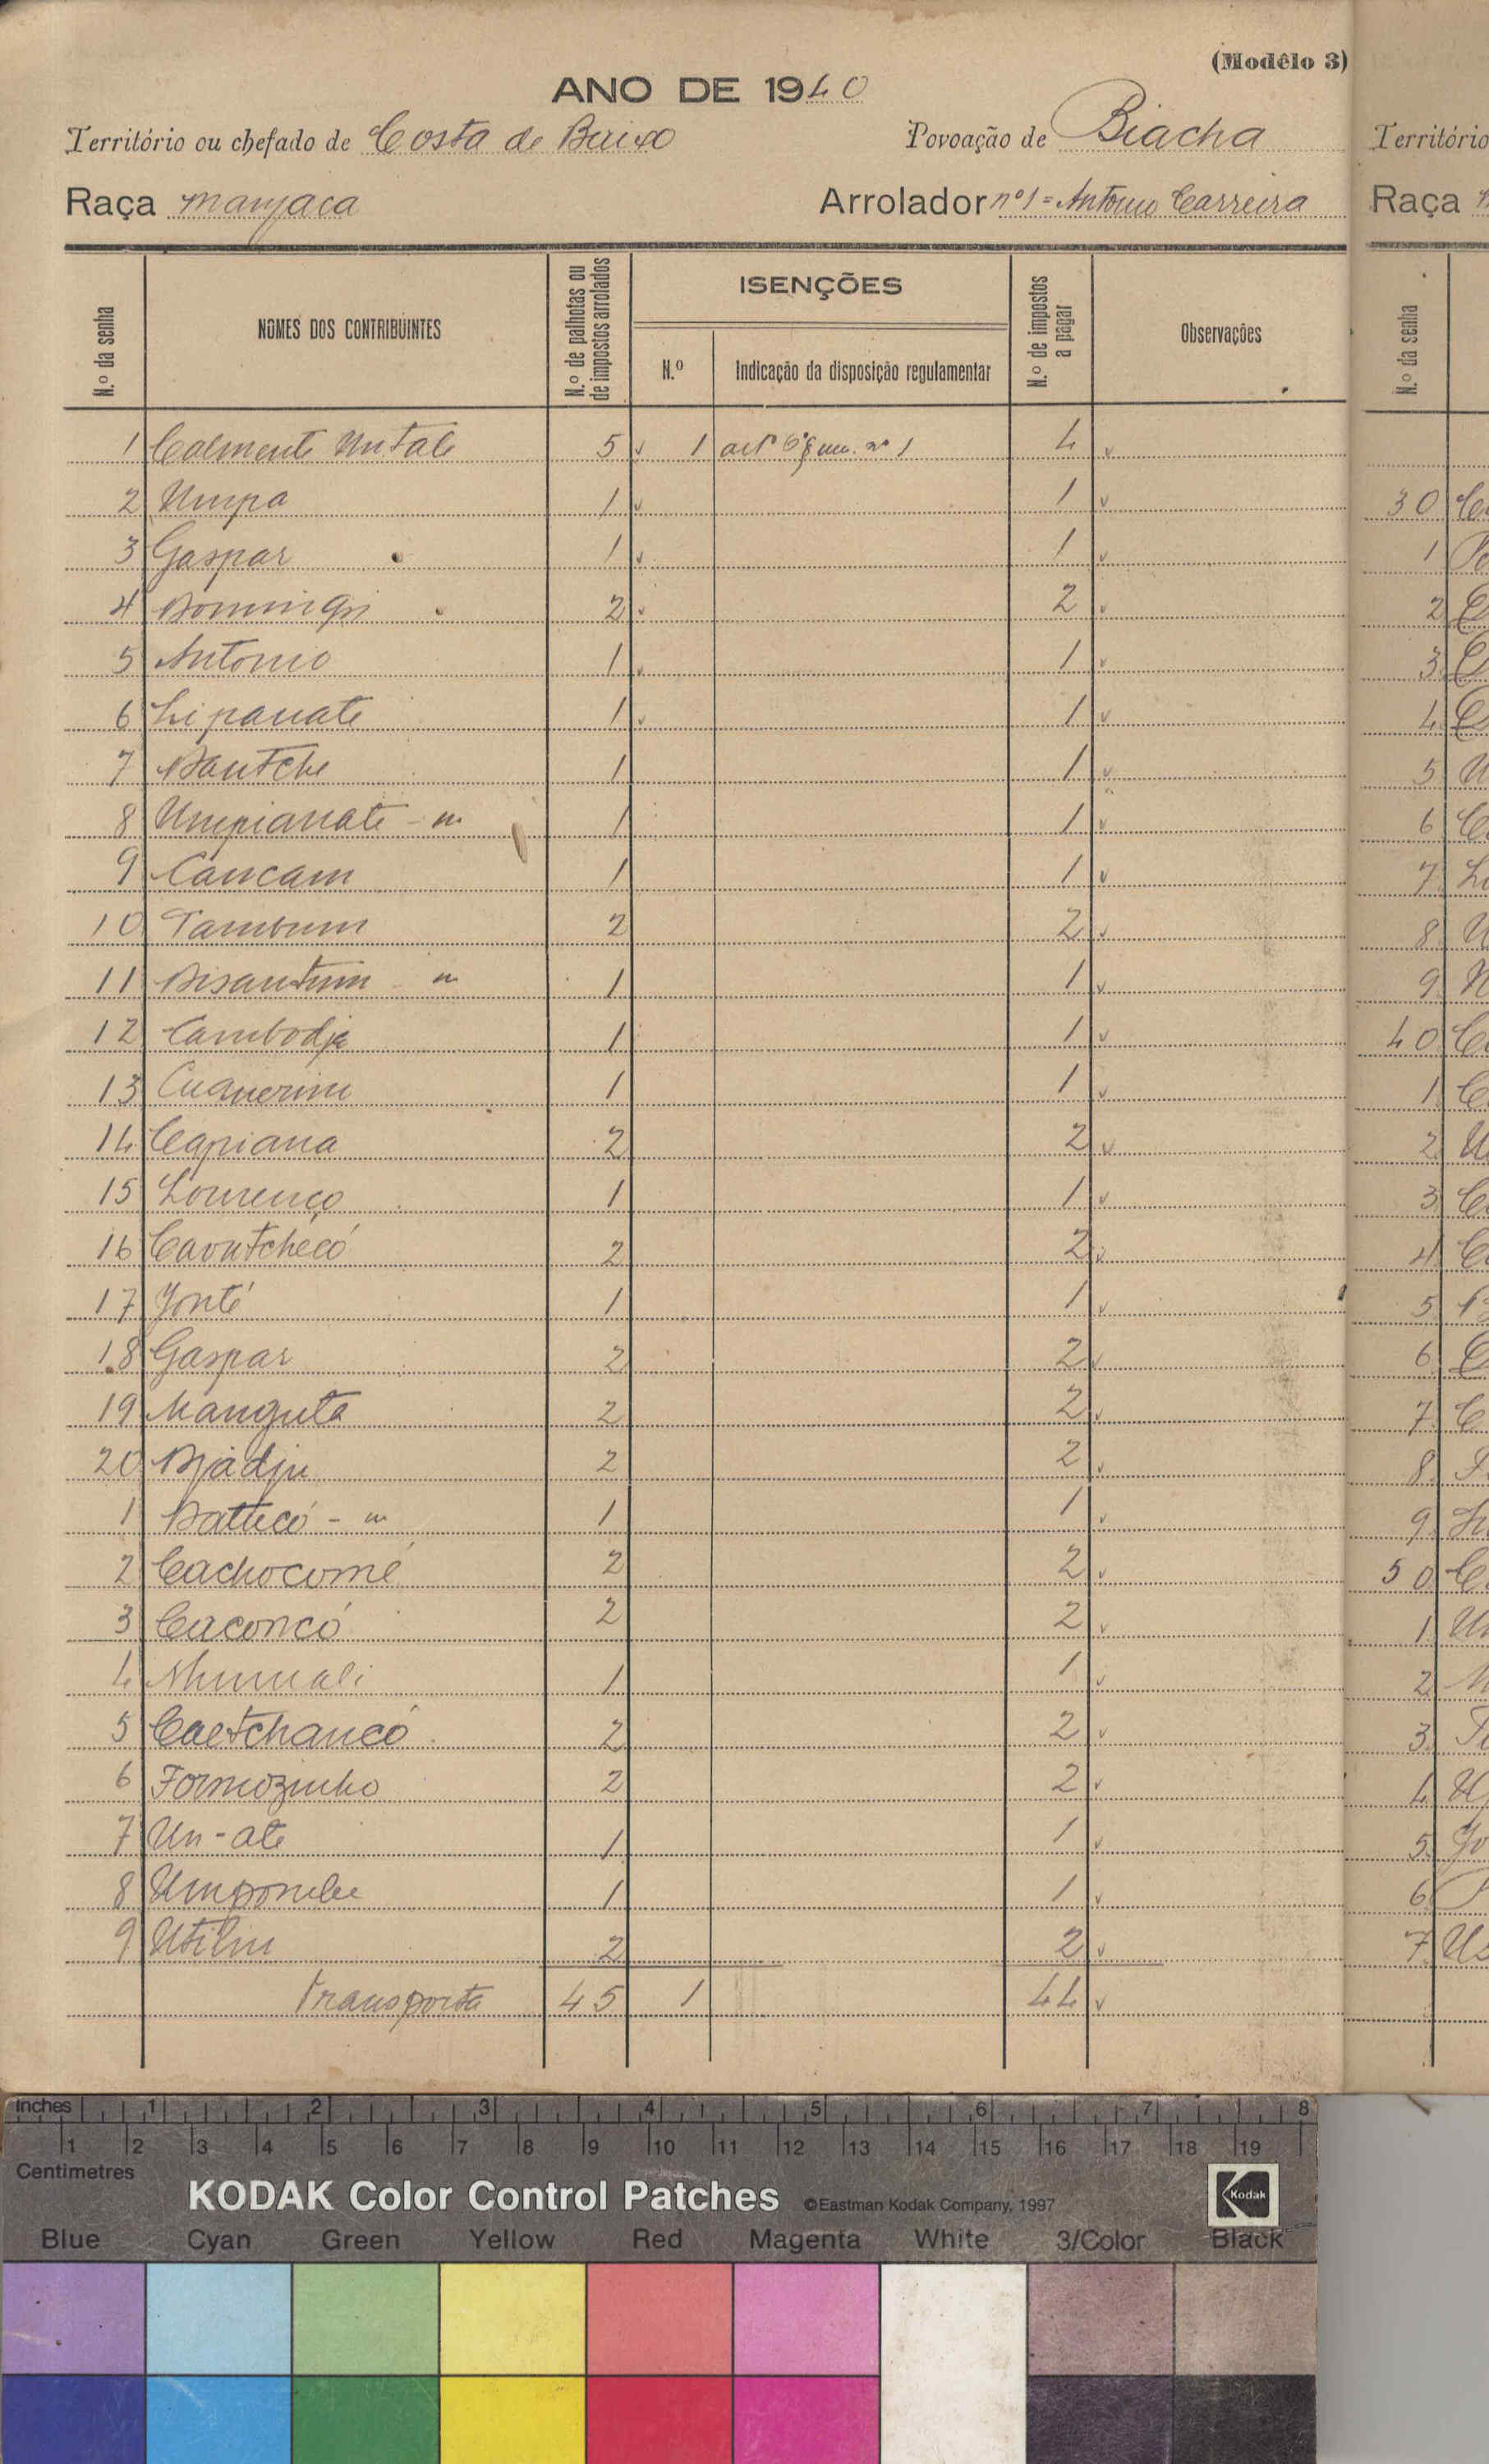 (Modêlo 3)
ANO DE 1940
Território ou chefado de Costa de Baixo Povoação de Biacha
Raça manjaca Arrolador nº1 = Antonio Carreira
N.º da senha NOMES DOS CONTRIBUINTES N.º de palhotas ou de impostos arrolados ISENÇÕES N.º de impostos a pagar Observações
N.º Indicação da disposição regulamentar
1 Calmente Untale 5 1 artº 6º nº 1 4
2 Umpa 1 1
3 Gaspar 1 1
4 Domingos 2 2
5 Antonio 1 1
6 Lipanate 1 1
7 Bautche 1 1
8 Umpianate - m 1 1
9 Cancam 1 1
10 Tambum 2 2
11 Bisantum - m 1 1
12 Cambodje 1 1
13 1 1
14 Capiana 2 2
15 Lourenço 1 1
16 Cavutchecó 2 2
17 Jonté 1 1
18 Gaspar 2 2
19 Manguta 2 2
20 Bjadju 2 2
1 Battecó - m 1 1
2 Cachocomé 2 2
3 Caconcó 2 2
4 1 1
5 Caetchancó 2 2
6 Formozinho 2 2
7 Un-ate 1 1
8 Umpombe 1 1
9 Utilin 2 2
Transporta 45 1 44
Território
Raça
N.º da senha
30
1
2
3
4
5
6
7
8
9
40
1
2
3
4
5
6
7
8
9
50
1
2
3
4
5
6
7
inches 1 2 3 4 5 6 7 8
1 2 3 4 5 6 7 8 9 10 11 12 13 14 15 16 17 18 19
Centimetres
KODAK Color Control Patches ©Eastman Kodak Company, 1997 Kodak
Blue Cyan Green Yellow Red Magenta White 3/Color Black